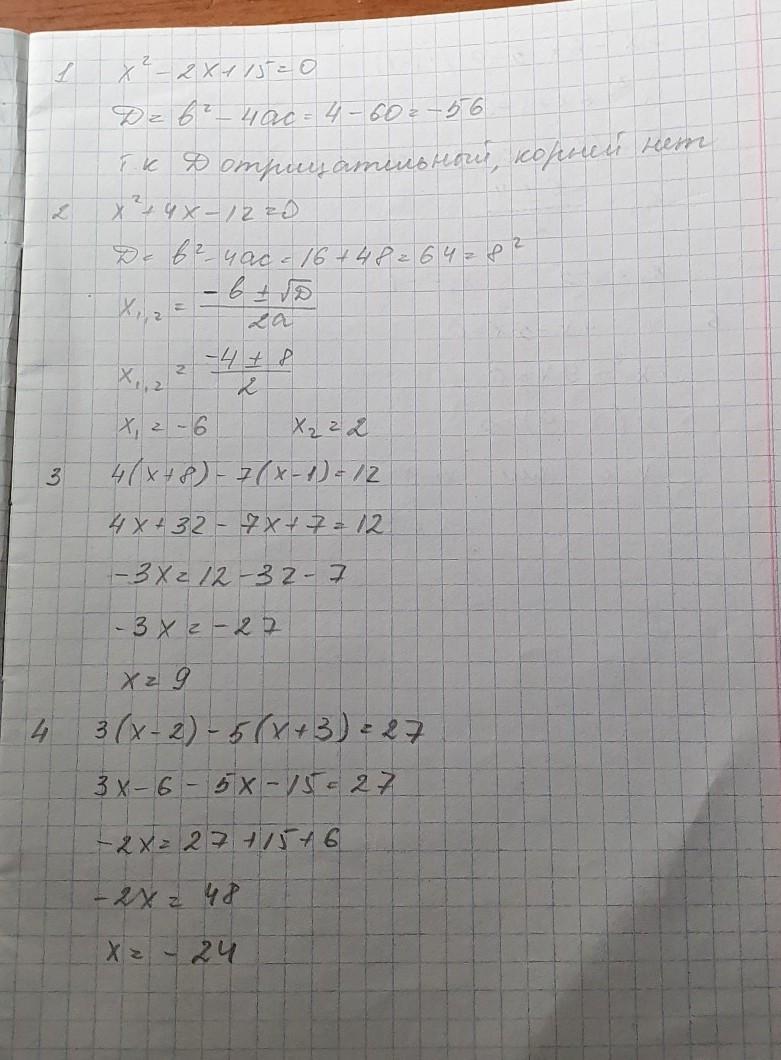 1 x² - 2x + 15 = 0
D = b² - 4ac = 4 - 60 = -56
т к D отрицательный, корней нет
2 x² + 4x - 12 = 0
D = b² - 4ac = 16 + 48 = 64 = 8²
x₁,₂ = (-b ± √D) / 2a
x₁,₂ = (-4 ± 8) / 2
x₁ = -6 x₂ = 2
3 4(x+8) - 7(x-1) = 12
4x + 32 - 7x + 7 = 12
-3x = 12 - 32 - 7
-3x = -27
x = 9
4 3(x-2) - 5(x+3) = 27
3x - 6 - 5x - 15 = 27
-2x = 27 + 15 + 6
-2x = 48
x = -24